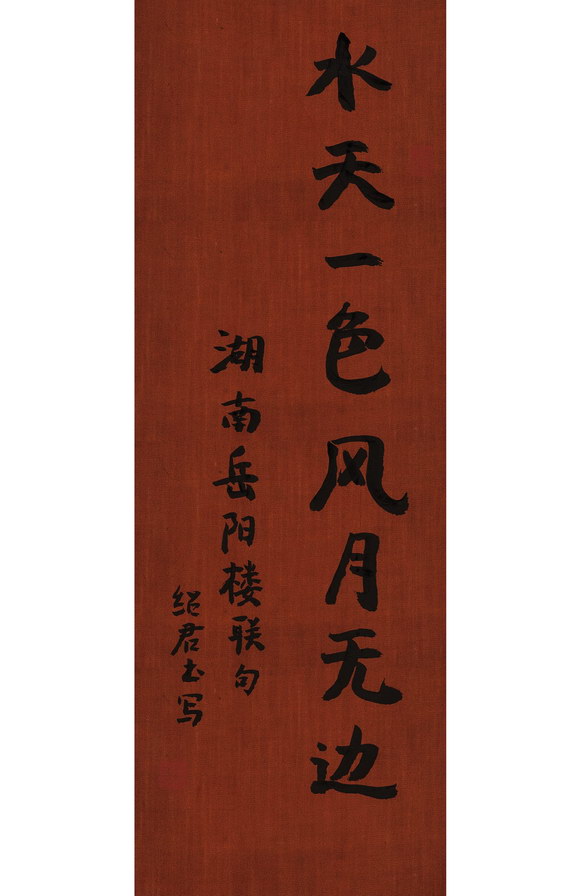 水天一色风月无边
湖南岳阳楼联句
绍君书写